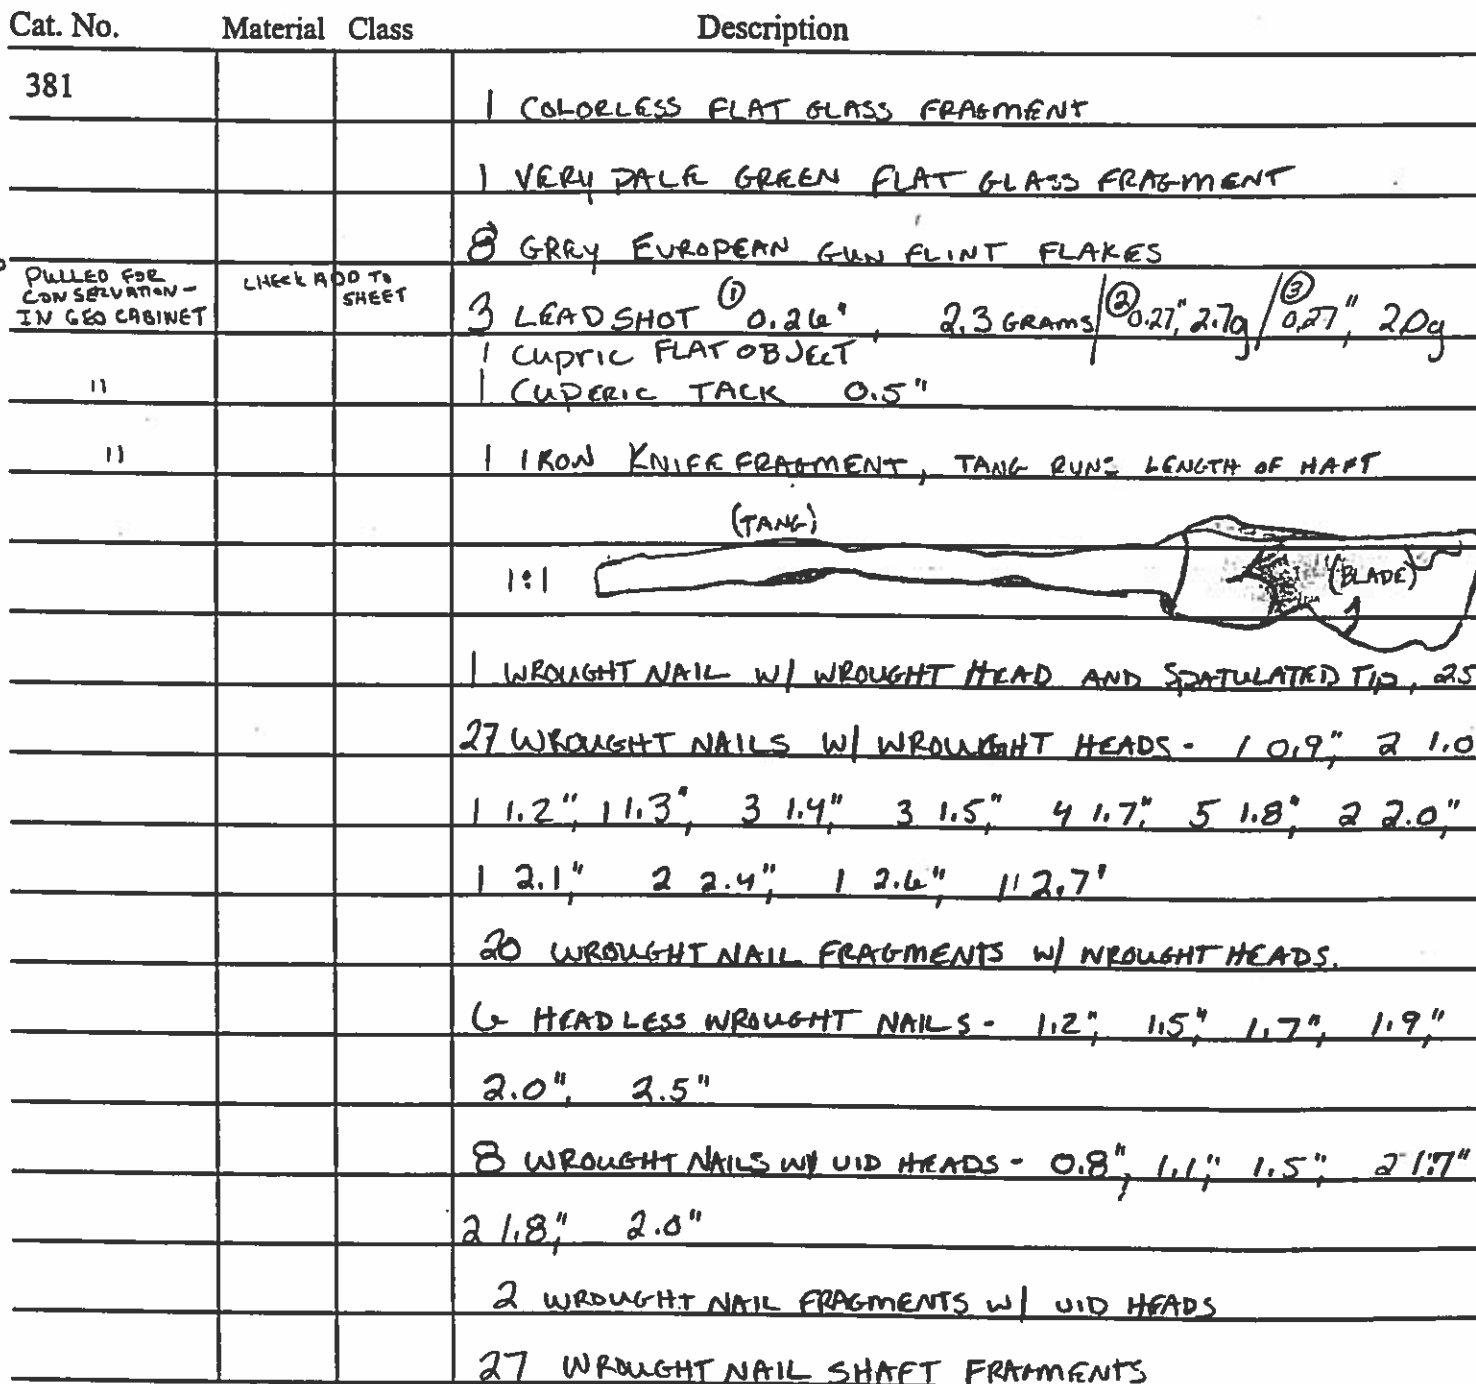 Cat. No. Material Class Description
381
1 COLORLESS FLAT GLASS FRAGMENT
1 VERY PALE GREEN FLAT GLASS FRAGMENT
8 GREY EUROPEAN GUN FLINT FLAKES
PULLED FOR
CONSERVATION-
IN GEO CABINET
CHECK ADD TO
SHEET
3 LEAD SHOT ① 0.26", 2.3 GRAMS / ② 0.27", 2.7g / ③ 0.27", 2.0g
1 CUPRIC FLAT OBJECT
" 1 CUPERIC TACK 0.5"
" 1 IRON KNIFE FRAGMENT, TANG RUNS LENGTH OF HAFT
(TANG)
1:1 (BLADE)
1 WROUGHT NAIL W/ WROUGHT HEAD AND SPATULATED TIP, 25
27 WROUGHT NAILS W/ WROUGHT HEADS - 1 0.9", 2 1.0
1 1.2", 1 1.3", 3 1.4", 3 1.5", 4 1.7", 5 1.8", 2 2.0",
1 2.1", 2 2.4", 1 2.6", 1 2.7"
20 WROUGHT NAIL FRAGMENTS W/ WROUGHT HEADS.
6 HEADLESS WROUGHT NAILS - 1.2", 1.5", 1.7", 1.9",
2.0", 2.5"
8 WROUGHT NAILS W/ UID HEADS - 0.8", 1.1", 1.5", 2 1.7"
2 1.8", 2.0"
2 WROUGHT NAIL FRAGMENTS W/ UID HEADS
27 WROUGHT NAIL SHAFT FRAGMENTS